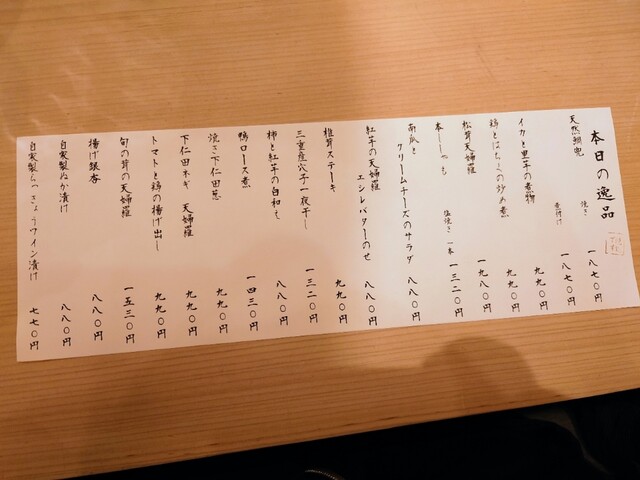 本日の逸品
天然鯛兜 焼き 一八七〇円
煮付け 一八七〇円
イカと里芋の煮物 九九〇円
鶏とはちみつの炒め煮 九九〇円
松茸天婦羅 一九八〇円
本ししゃも 塩焼き 一本 一三二〇円
南瓜と
クリームチーズのサラダ 八八〇円
紅芋の天婦羅
エシレバターのせ 八八〇円
椎茸ステーキ 九九〇円
三重産穴子一夜干し 一三二〇円
柿と紅芋の白和え 八八〇円
鴨ロース煮 一四三〇円
焼き下仁田葱 九九〇円
下仁田ネギ 天婦羅 九九〇円
トマトと鶏の揚げ出し 九九〇円
旬の茸の天婦羅 一五三〇円
揚げ銀杏 八八〇円
自家製ぬか漬け 八八〇円
自家製らっきょうワイン漬け 七七〇円